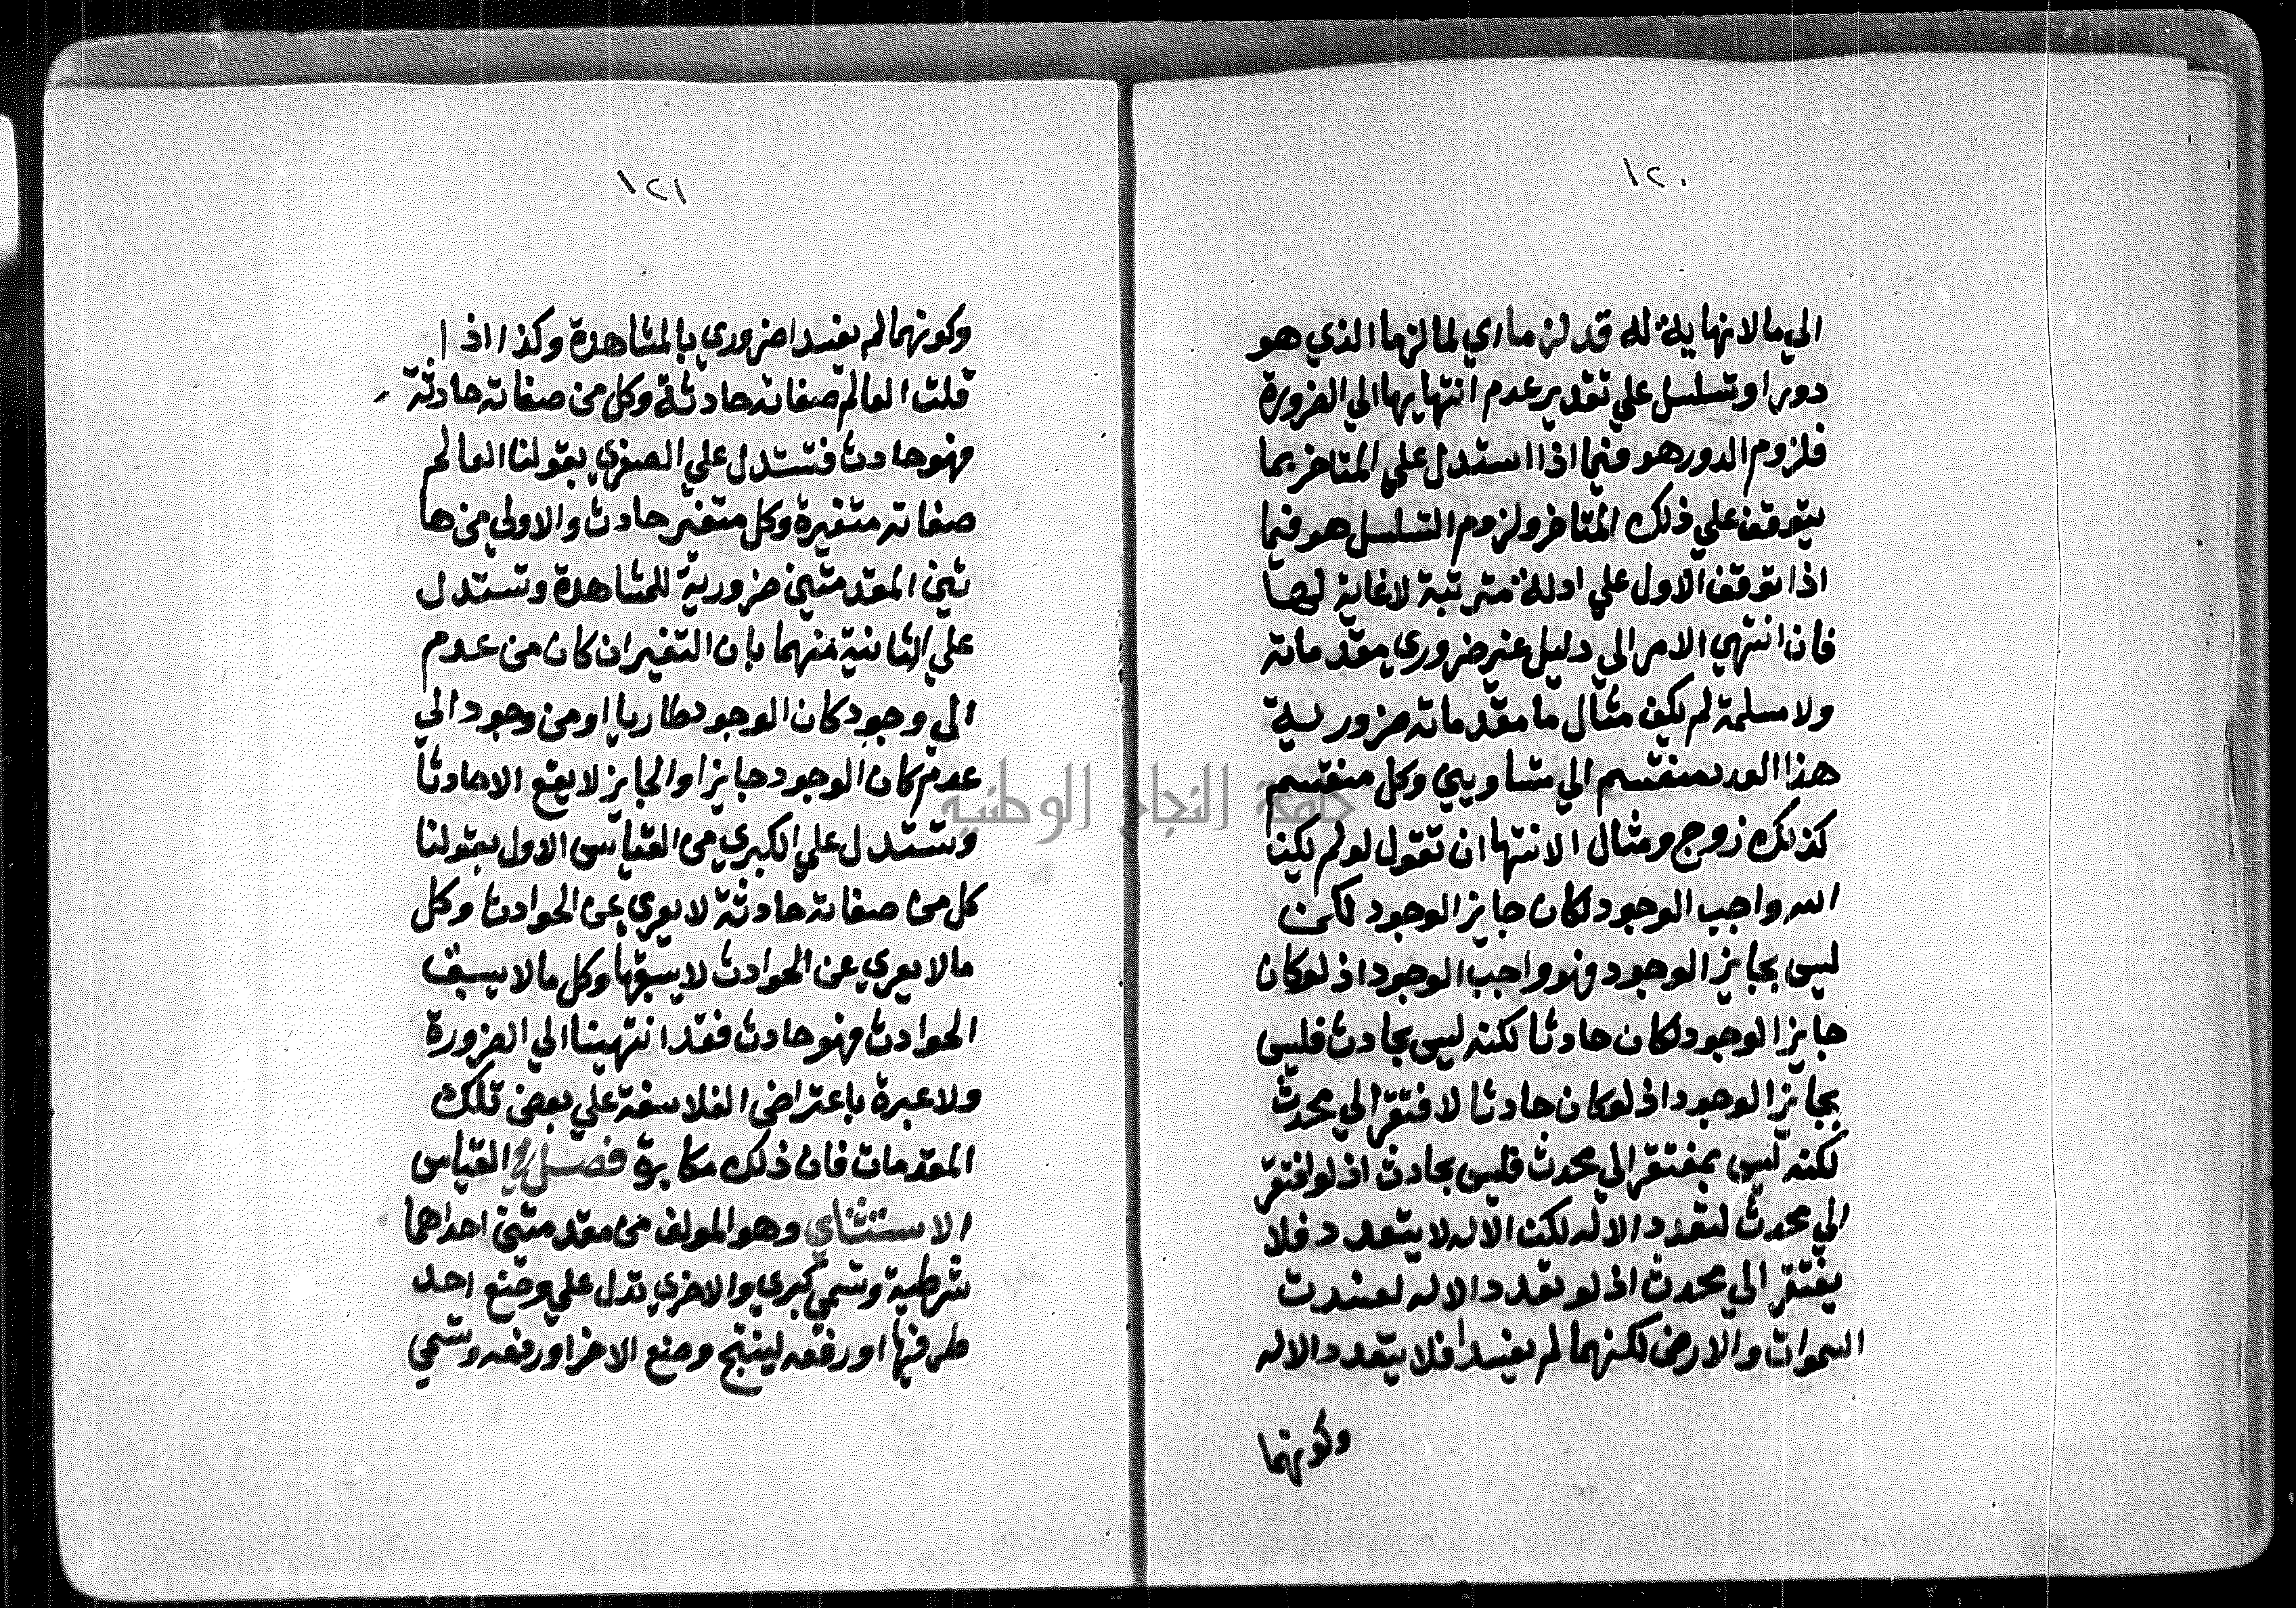 ١٢٠
الي مالا نهاية له قد لزما اي لما لزما الذي هو
دور او تسلسل علي تقدير عدم انتهايها الي الضرورة
فلزوم الدور هو فيما اذا استدل علي المتاخر بما
يتوقف علي ذلك المتاخر ولزوم التسلسل هو فيما
اذا توقف الاول علي ادلة مترتبة لا غاية لها
فان انتهي الامر الي دليل غير ضروري مقدماته
ولا مسلمة لم يكف مثال ما مقدماته ضرورية
هذا العدد منقسم الي متساويين وكل منقسم
كذلك زوج ومثال الانتها ان تقول لو لم يكن
الله واجب الوجود لكان جايز الوجود لكن
ليس بجايز الوجود فهو واجب الوجود اذ لو كان
جايز الوجود لكان حادثا لكنه ليس بحادث فليس
بجايز الوجود اذ لو كان حادثا لافتقر الي محدث
لكنه ليس بمفتقر الي محدث فليس بحادث اذ لو افتقر
الي محدث لتعدد الاله لكن الاله لا يتعدد فلا
يفتقر الي محدث اذ لو تعدد الاله لفسدت
السموات والارض لكنهما لم يفسدا فلا يتعدد الاله
وكونهما
١٢١
وكونهما لم يفسدا ضروري بالمشاهدة وكذا اذا
قلت العالم صفاته حادثة وكل من صفاته حادثة
فهو حادث فتستدل علي الصغري بقولنا العالم
صفاته متغيرة وكل متغير حادث والاولي من ها
تين المقدمتين ضرورية للمشاهدة وتستدل
علي الثانية منهما بان التغير ان كان من عدم
الي وجود كان الوجود طاريا او من وجود الي
عدم كان الوجود جايزا والجايز لا يقع الا حادثا
وتستدل علي الكبري من القياس الاول بقولنا
كل من صفاته حادثة لا يعري عن الحوادث وكل
مالا يعري عن الحوادث لا يسبقها وكل مالا يسبق
الحوادث فهو حادث فقد انتهينا الي الضرورة
ولا عبرة باعتراض الفلاسفة علي بعض تلك
المقدمات فان ذلك مكابرة فصل في القياس
الاستثناي وهو المولف من مقدمتين احداهما
شرطية وتسمي كبري والاخري تدل علي وضع احد
طرفيها او رفعه لينتج وضع الاخر او رفعه وتسمي
جامعة النجاح الوطنية